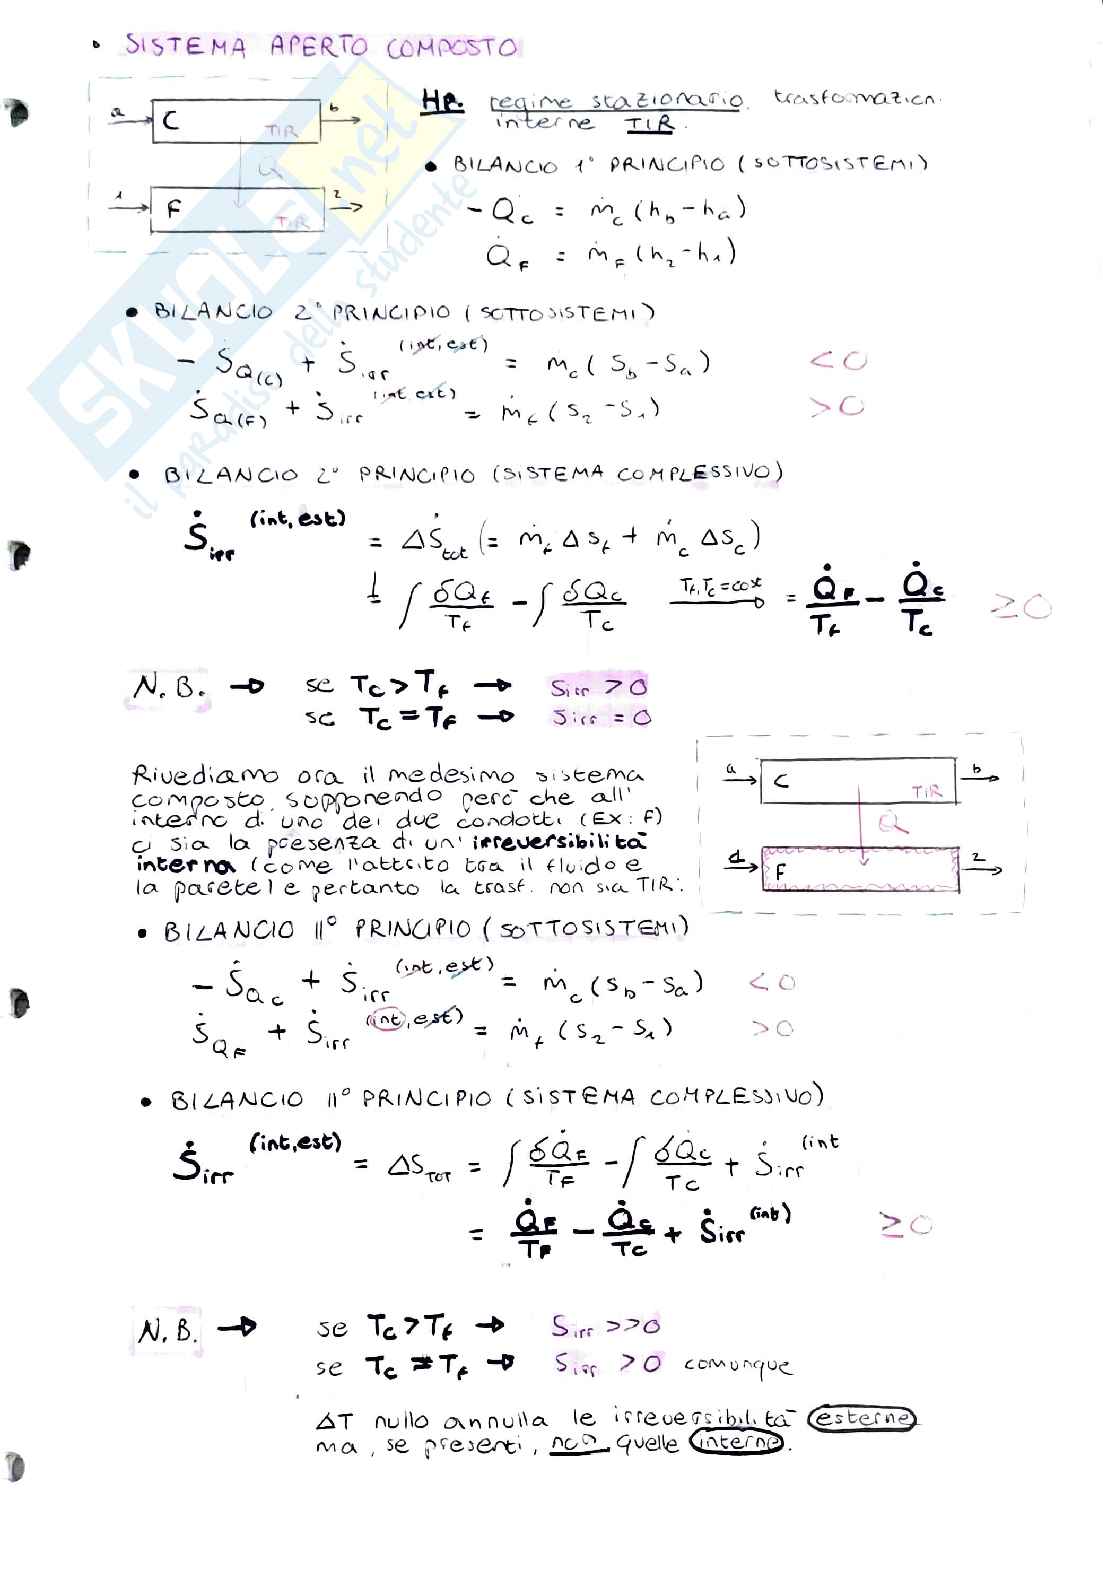 • SISTEMA APERTO COMPOSTO
a C b TIR
Q
1 F 2 TIR
HP. regime stazionario, trasformazioni
interne TIR.
• BILANCIO 1° PRINCIPIO (SOTTOSISTEMI)
- Q̇c = ṁc (hb - ha)
Q̇F = ṁF (h2 - h1)
• BILANCIO 2° PRINCIPIO (SOTTOSISTEMI)
- ṠQ(C) + Ṡirr (int, est) = mc (Sb - Sa) <0
ṠQ(F) + Ṡirr (int est) = ṁf (S2 - S1) >0
• BILANCIO 2° PRINCIPIO (SISTEMA COMPLESSIVO)
Ṡirr (int, est) = ΔṠtot (= ṁf Δsf + ṁc ΔSc)
∫ δQf/Tf - ∫ δQc/Tc Tf,Tc = cost → = Q̇F/Tf - Q̇c/Tc ≥0
N.B. → se Tc > Tf → Sirr > 0
se Tc = Tf → Sirr = 0
Rivediamo ora il medesimo sistema
composto, supponendo però che all'
interno di uno dei due condotti (EX: F)
ci sia la presenza di un' irreversibilità
interna (come l'attrito tra il fluido e
la parete) e pertanto la trasf. non sia TIR:
a C b TIR
Q̇
1 F 2
• BILANCIO II° PRINCIPIO (SOTTOSISTEMI)
- ṠQc + Ṡirr (int, est) = ṁc (Sb - Sa) <0
ṠQF + Ṡirr (int, est) = ṁf (S2 - S1) >0
• BILANCIO II° PRINCIPIO (SISTEMA COMPLESSIVO)
Ṡirr (int,est) = ΔSTOT = ∫ δQ̇F/TF - ∫ δQ̇c/Tc + Ṡirr (int
= Q̇F/TF - Q̇c/Tc + Ṡirr (int) ≥0
N.B. → se Tc > Tf → Sirr >>0
se Tc = Tf → Sirr > 0 comunque
ΔT nullo annulla le irreversibilità esterne
ma, se presenti, non quelle interne.
SKUOLA.net
il paradiso dello studente